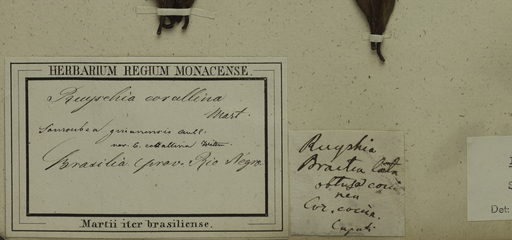 HERBARIUM REGIUM MONACENSE.
Ruyschia corallina
Mart.
Souroubea guianensis Aubl.
var. E. corallina Wittm.
Brasilia (prov. Rio Negro
Martii iter brasiliense.
Ruyshia
Bractea
obtusa
Cor. coccin.
Det: